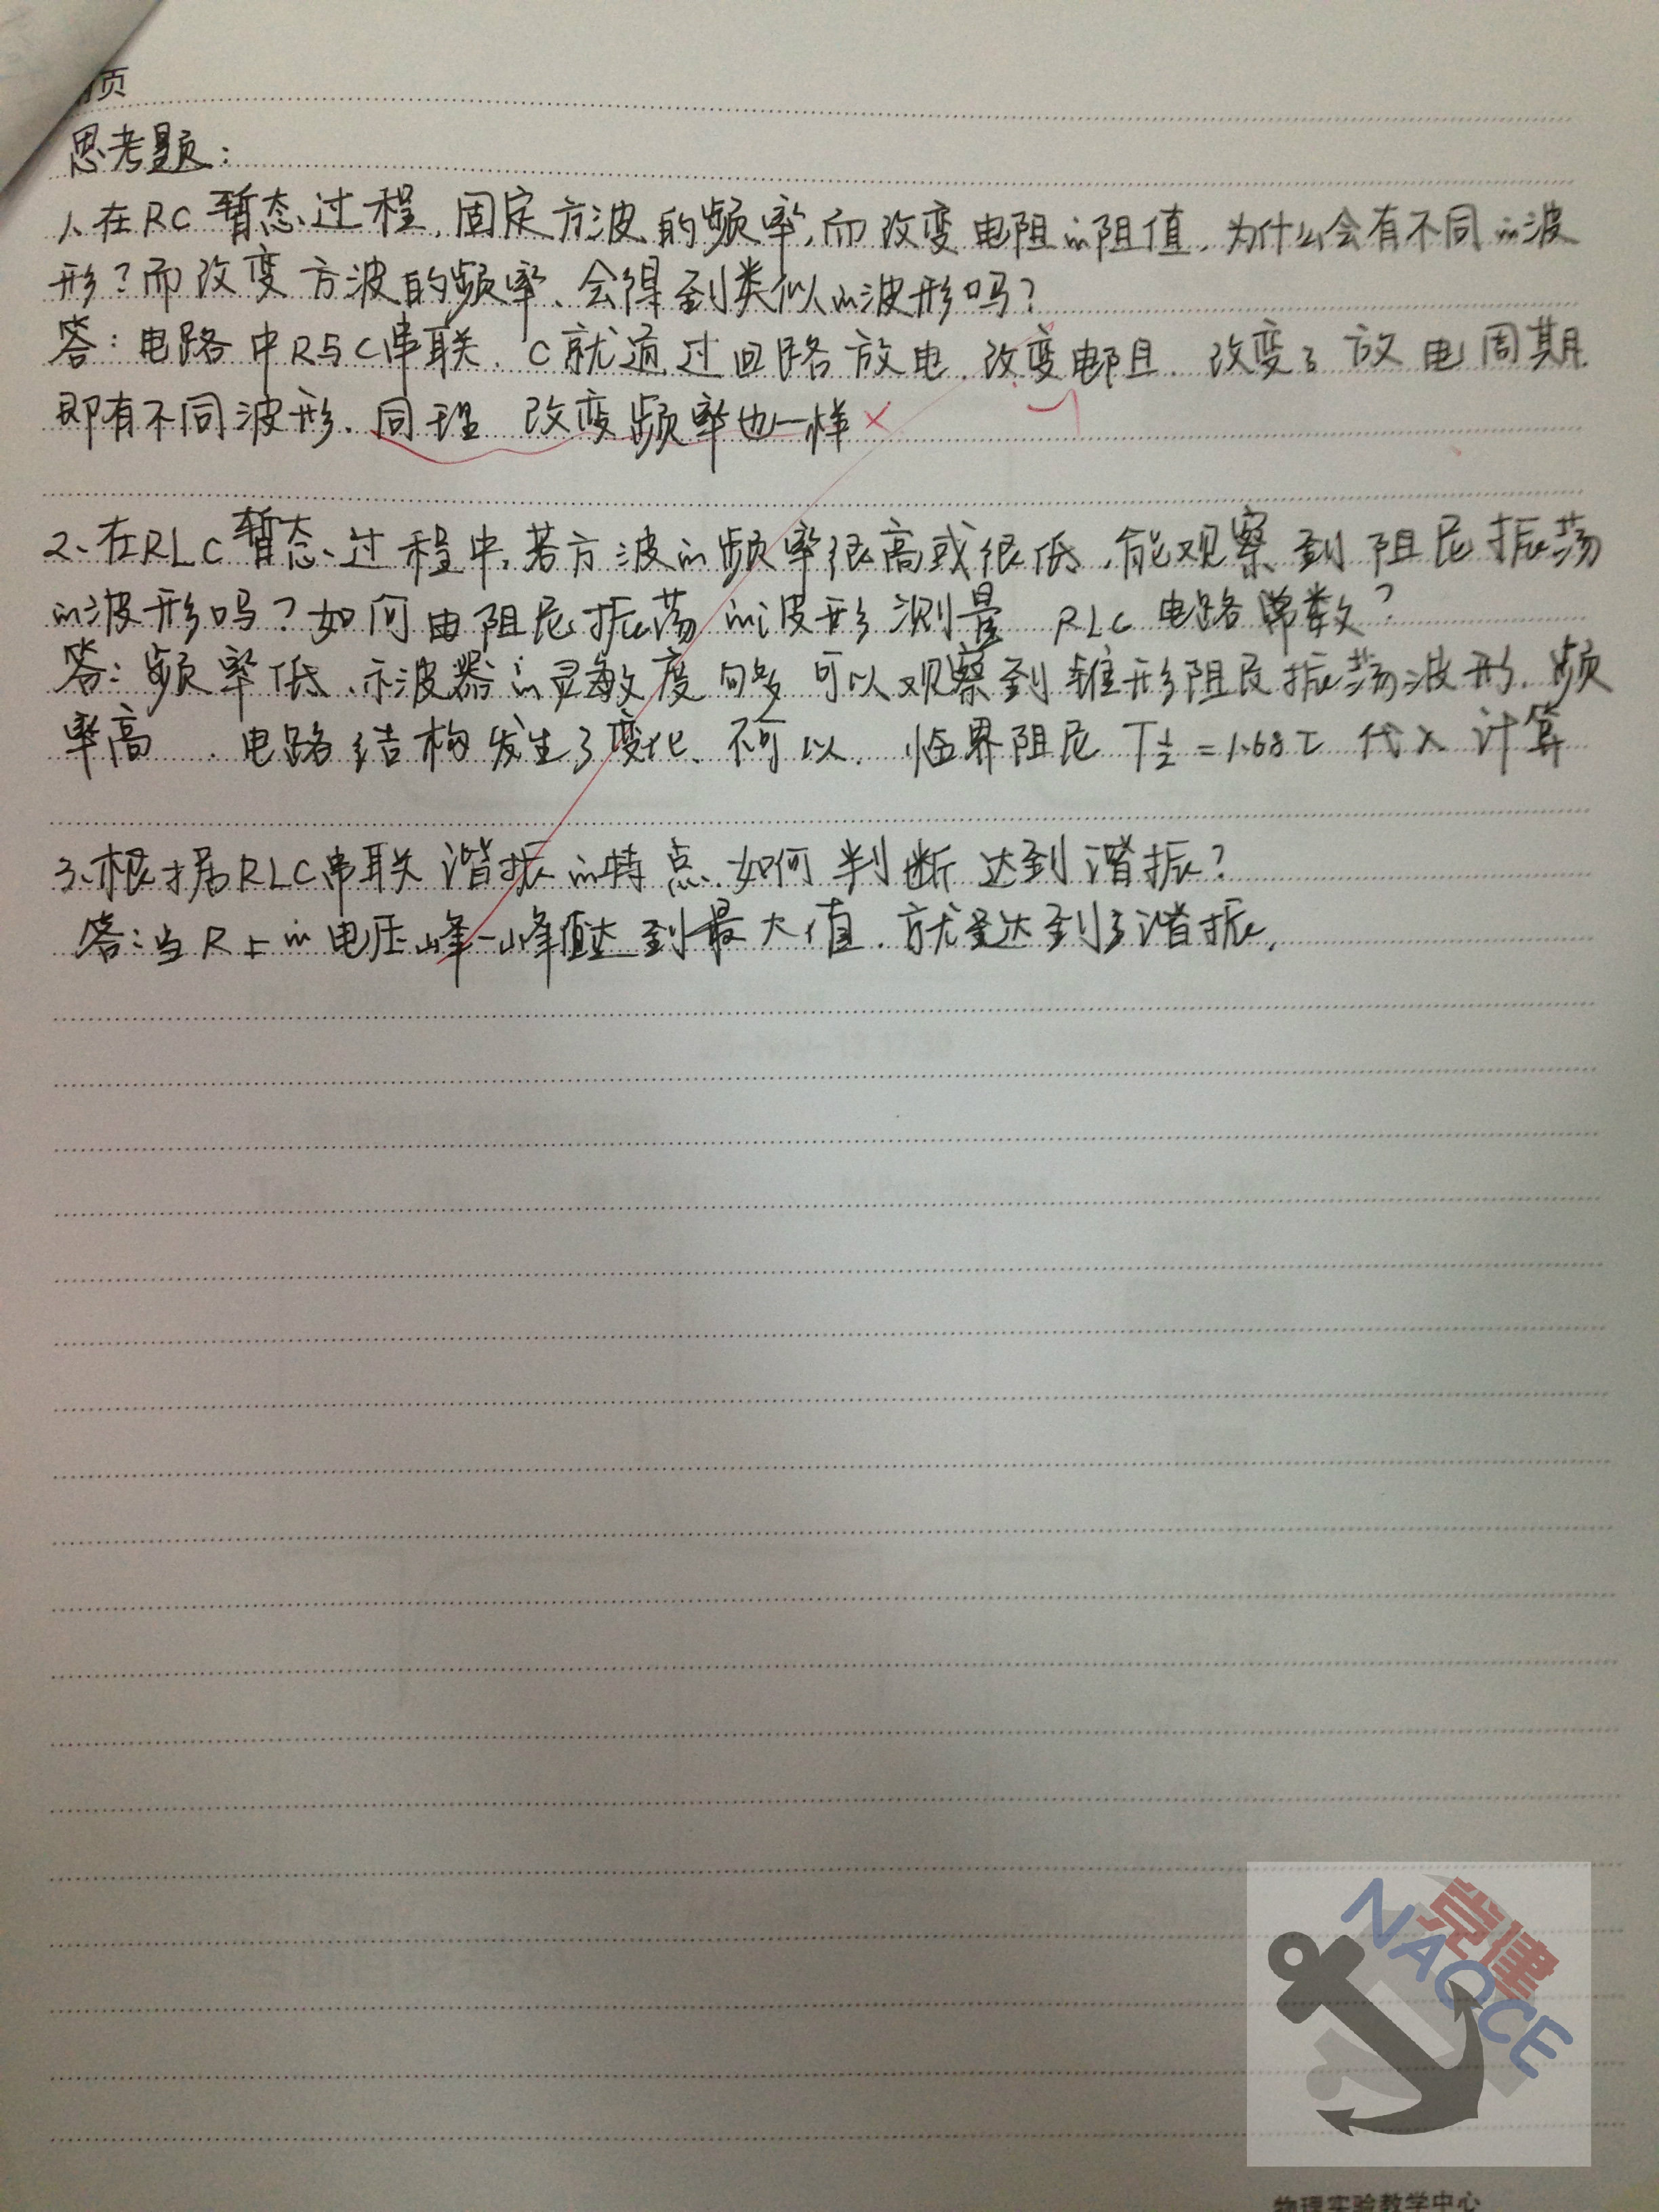 页
思考题:
1、在RC暂态过程,固定方波的频率,而改变电阻的阻值,为什么会有不同的波
形?而改变方波的频率、会得到类似的波形吗?
答:电路中R与C串联,C就通过回路放电,改变电阻,改变了放电周期
即有不同波形,同理 改变频率也一样×
2、在RLC暂态过程中,若方波的频率很高或很低,能观察到阻尼振荡
的波形吗?如何由阻尼振荡的波形测量 RLC电路常数?
答:频率低、示波器的灵敏度够可以观察到锥形阻尼振荡波形,频
率高,电路结构发生了变化、不可以.临界阻尼 T½=1.68τ 代入计算
3、根据RLC串联谐振的特点,如何判断达到谐振?
答:当R上的电压峰-峰值达到最大值,就是达到了谐振.
党建
NAOCE
物理实验教学中心